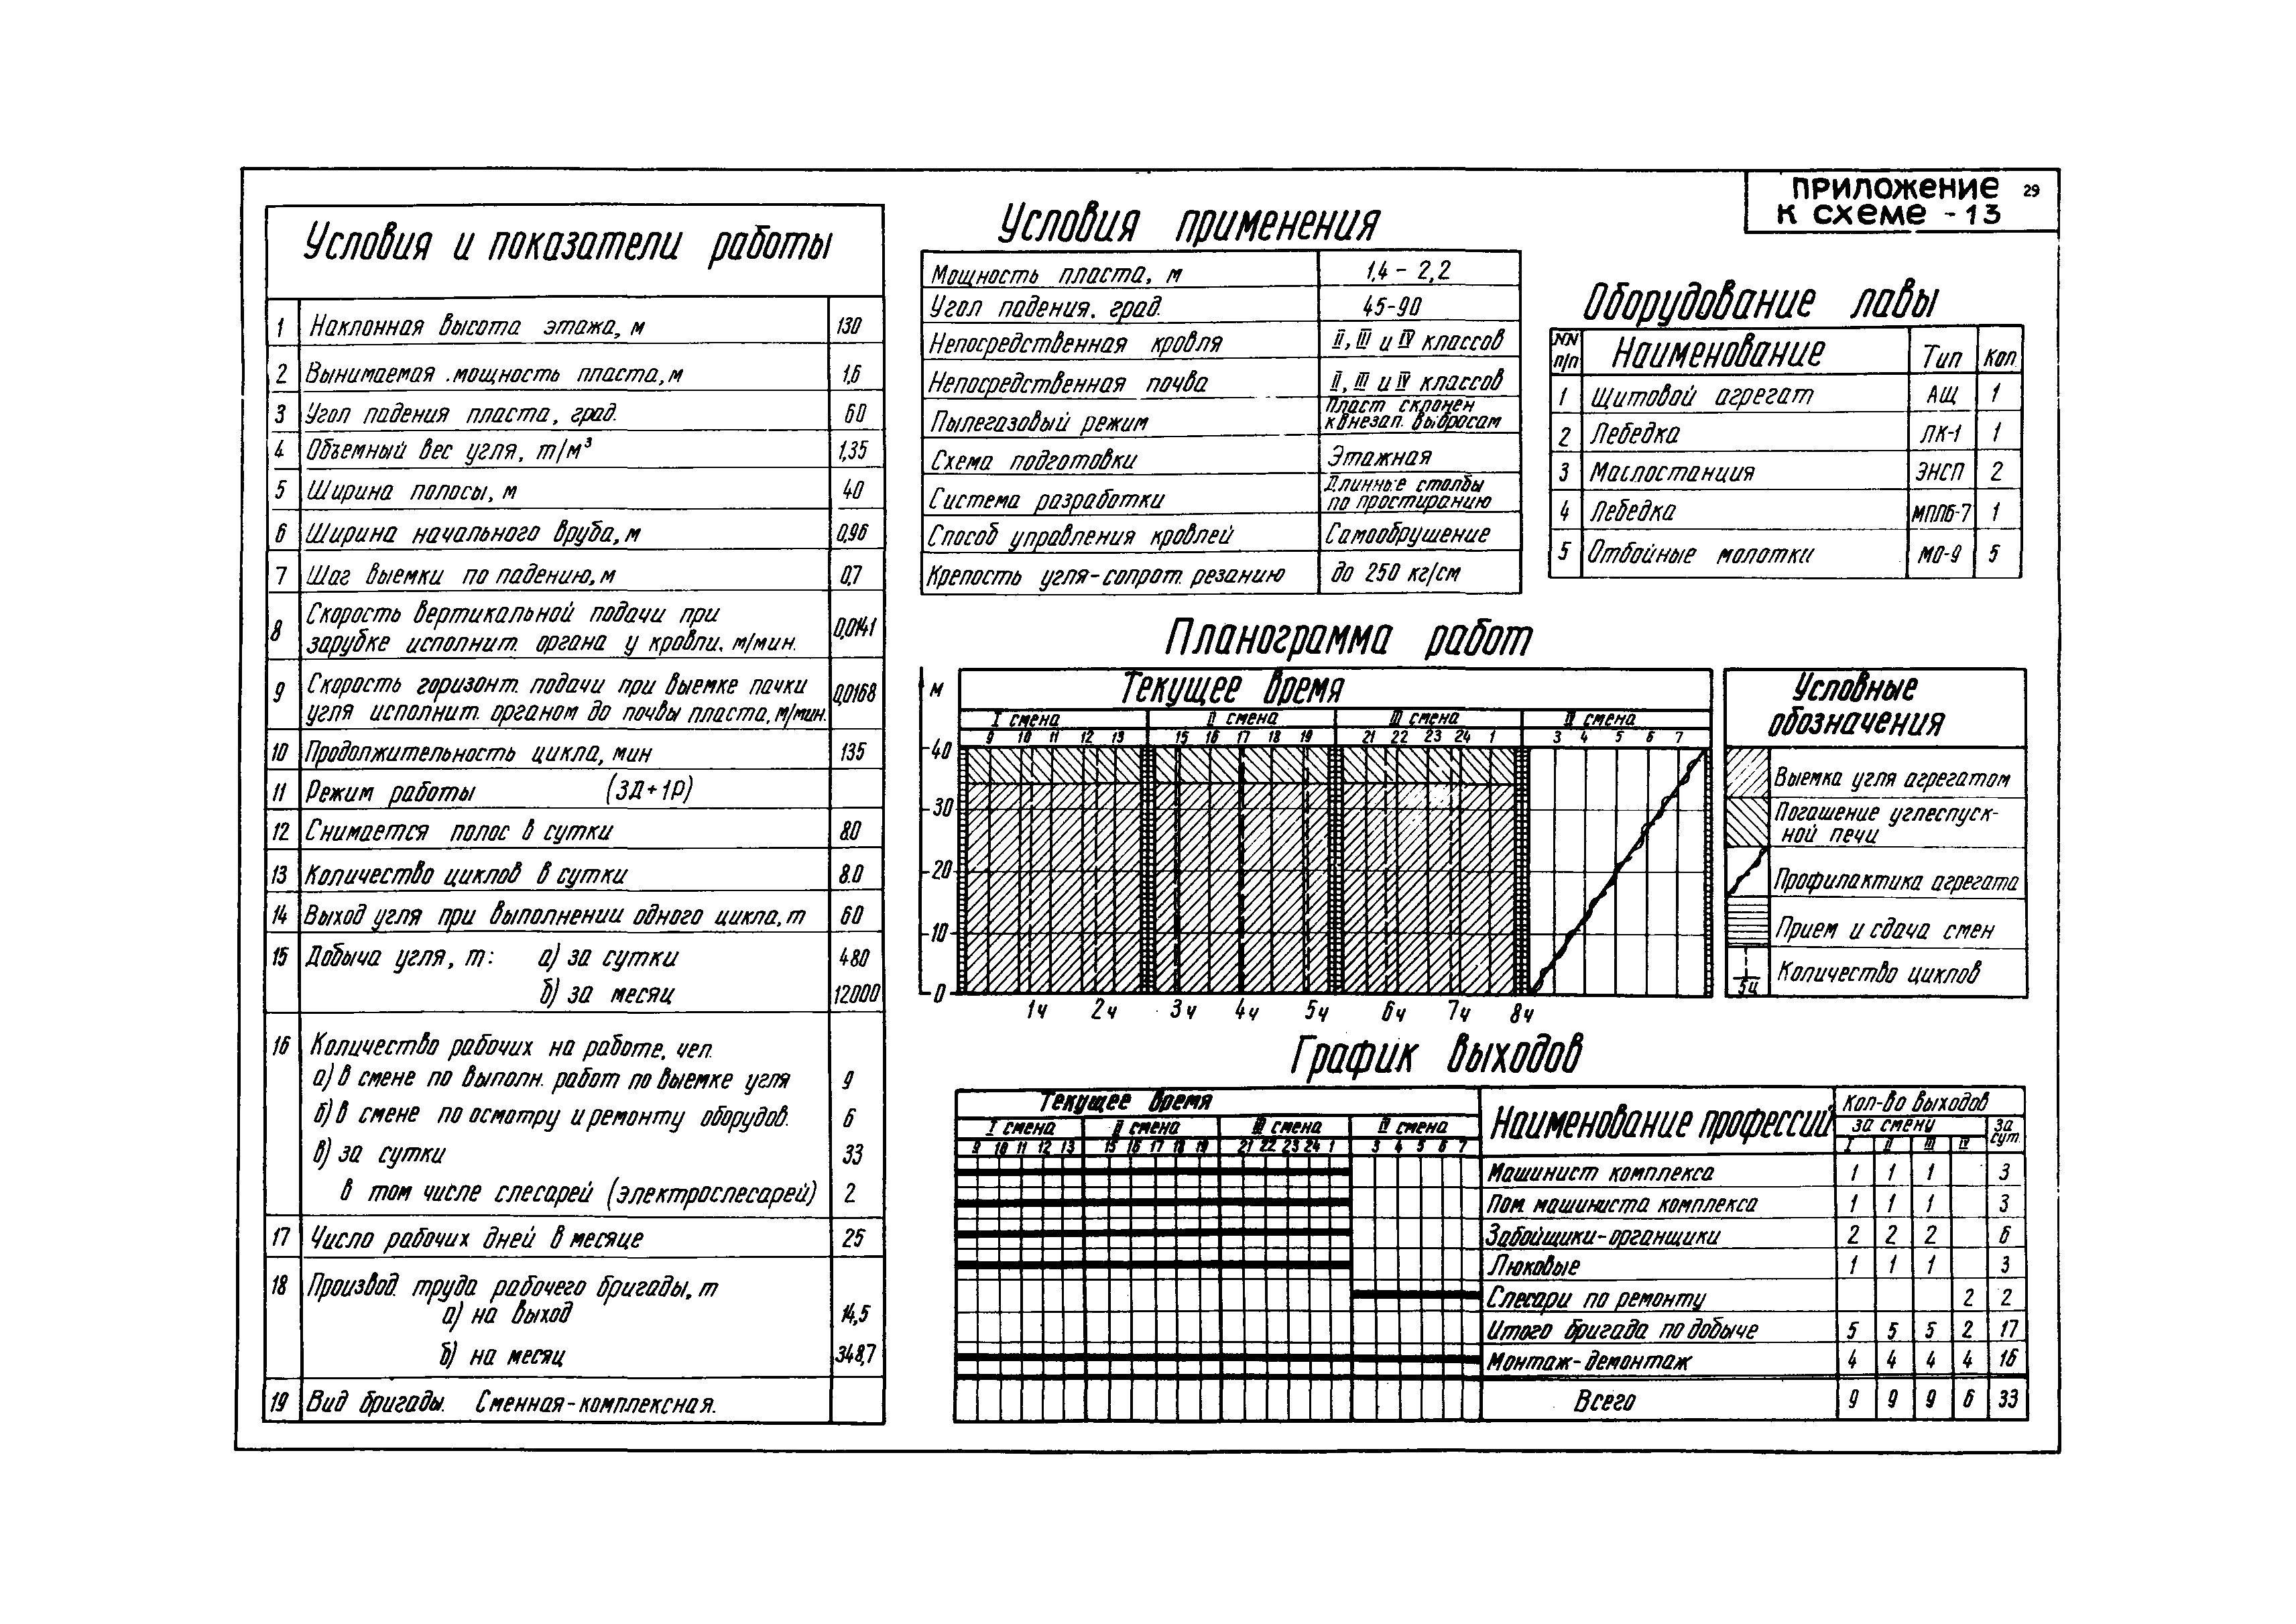 приложение 29
к схеме - 13
Условия и показатели работы
1 Наклонная высота этажа, м 130
2 Вынимаемая мощность пласта, м 1,6
3 Угол падения пласта, град. 60
4 Объемный вес угля, т/м³ 1,35
5 Ширина полосы, м 40
6 Ширина начального вруба, м 0,96
7 Шаг выемки по падению, м 0,7
8 Скорость вертикальной подачи при
зарубке исполнит. органа у кровли, м/мин. 0,0141
9 Скорость горизонт. подачи при выемке пачки
угля исполнит. органом до почвы пласта, м/мин. 0,0168
10 Продолжительность цикла, мин 135
11 Режим работы (3Д+1Р)
12 Снимается полос в сутки 8.0
13 Количество циклов в сутки 8.0
14 Выход угля при выполнении одного цикла, т 60
15 Добыча угля, т: а) за сутки 480
б) за месяц 12000
16 Количество рабочих на работе, чел.
а) в смене по выполн. работ по выемке угля 9
б) в смене по осмотру и ремонту оборудов. 6
в) за сутки 33
в том числе слесарей (электрослесарей) 2
17 Число рабочих дней в месяце 25
18 Производ. труда рабочего бригады, т
а) на выход 14,5
б) на месяц 348,7
19 Вид бригады. Сменная-комплексная.
Условия применения
Мощность пласта, м 1,4 - 2,2
Угол падения, град. 45-90
Непосредственная кровля II, III и IV классов
Непосредственная почва II, III и IV классов
Пылегазовый режим Пласт склонен
к внезап. выбросам
Схема подготовки Этажная
Система разработки Длинные столбы
по простиранию
Способ управления кровлей Самообрушение
Крепость угля-сопрот. резанию до 250 кг/см
Оборудование лавы
NN п/п Наименование Тип Кол
1 Щитовой агрегат АЩ 1
2 Лебедка ЛК-1 1
3 Маслостанция ЭНСП 2
4 Лебедка МПЛБ-7 1
5 Отбойные молотки МО-9 5
Планограмма работ
м Текущее время
I смена II смена III смена IV смена
9 10 11 12 13 15 16 17 18 19 21 22 23 24 1 3 4 5 6 7
40
30
20
10
0
1ч 2ч 3ч 4ч 5ч 6ч 7ч 8ч
Условные
обозначения
Выемка угля агрегатом
Погашение углеспуск-
ной печи
Профилактика агрегата
Прием и сдача смен
5ц Количество циклов
График выходов
Текущее время Наименование профессий Кол-во выходов
I смена II смена III смена IV смена за смену за сут.
9 10 11 12 13 15 16 17 18 19 21 22 23 24 1 3 4 5 6 7 I II III IV
Машинист комплекса 1 1 1 3
Пом. машиниста комплекса 1 1 1 3
Забойщики-органщики 2 2 2 6
Люковые 1 1 1 3
Слесари по ремонту 2 2
Итого бригада по добыче 5 5 5 2 17
Монтаж-демонтаж 4 4 4 4 16
Всего 9 9 9 6 33